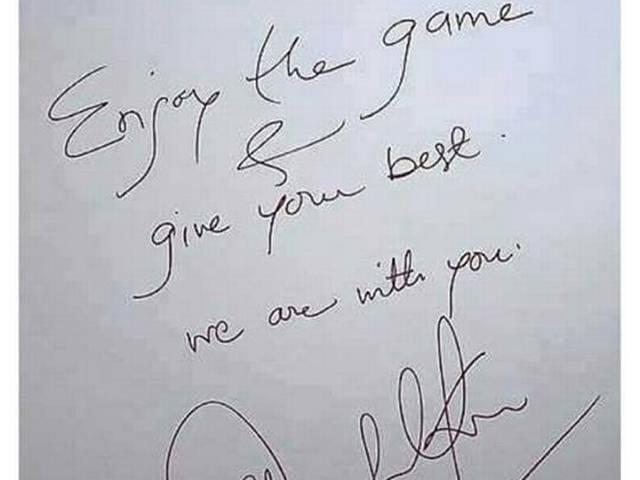 Enjoy the game
&
give your best.
we are with you.